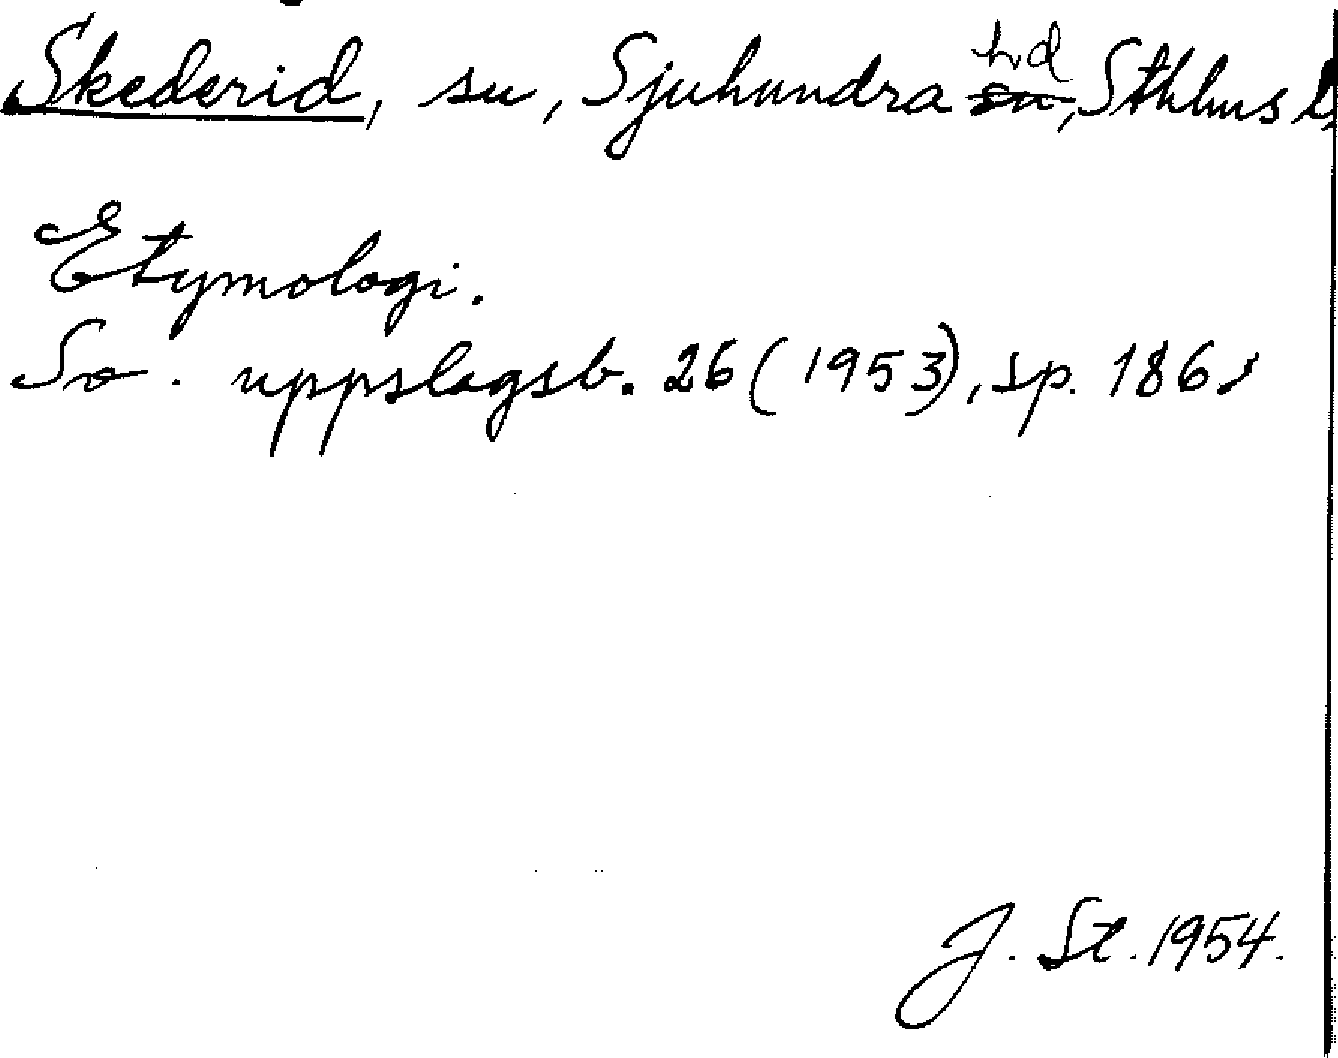 Skederid, sn, Sjuhundra hd, Sthlms l.
Etymologi.
Sv. uppslagsb. 26 (1953), sp. 186
J. St. 1954.